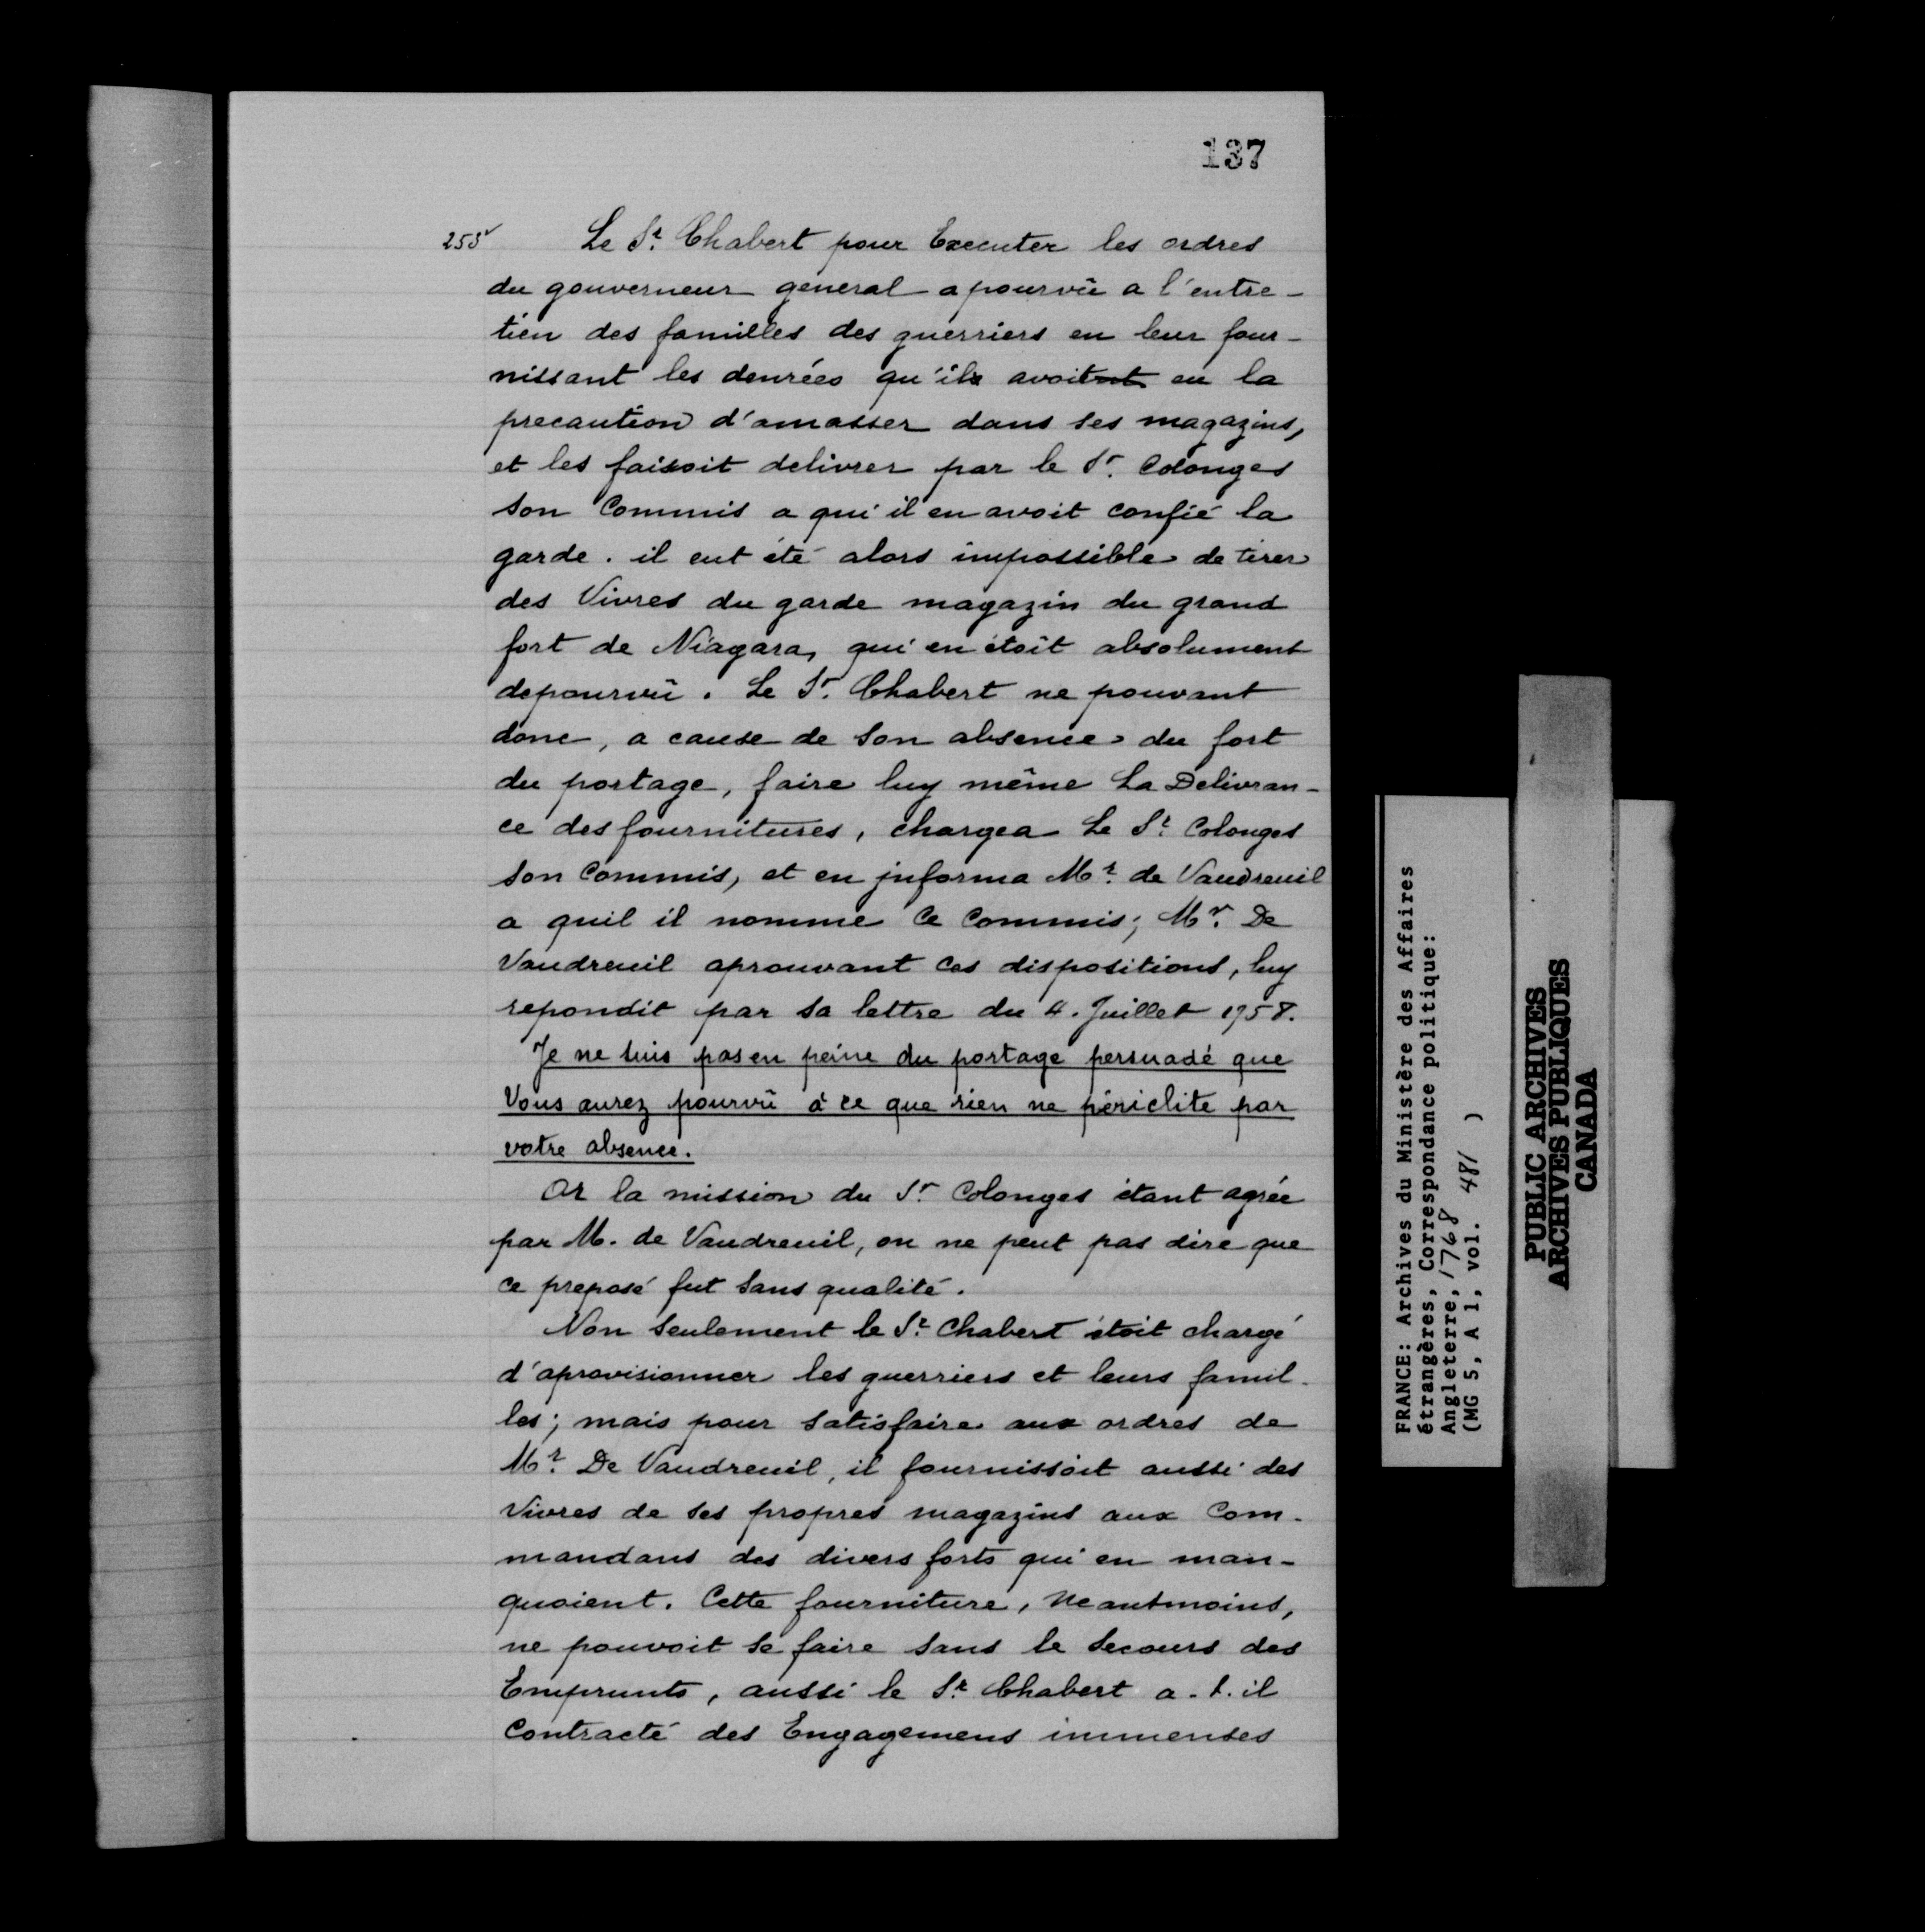 137
253v
Le Sr. Chabert pour Executer les ordres
du gouverneur general a pourvû a l'entre-
tien des familles des guerriers en leur four-
nissant les denrées qu'il avoit eu la
precaution d'amasser dans ses magazins,
et les faisoit delivrer par le Sr. Colonges
son Commis a qui il en avoit confié la
garde. il eut été alors impossible de tirer
des Vivres du garde magazin du grand
fort de Niagara, qui en étoit absolument
depourvû. Le Sr. Chabert ne pouvant
donc, a cause de son absence du fort
du portage, faire luy même La Delivran-
ce des fournitures, chargea Le Sr. Colonges
son Commis, et en informa Mr. de Vaudreuil
a quil il nomme Ce Commis; Mr. De
Vaudreuil aprouvant ces dispositions, luy
repondit par sa lettre du 4. Juillet 1758.
Je ne suis pas en peine du portage persuadé que
Vous aurez pourvû à ce que rien ne périclite par
votre absence.
Or la mission du Sr. Colonges étant agrée
par M. de Vaudreuil, on ne peut pas dire que
ce preposé fut sans qualité.
Non seulement le Sr. Chabert étoit chargé
d'aprovisionner les guerriers et leurs famil-
les; mais pour satisfaire aux ordres de
Mr. De Vaudreuil, il fournissoit aussi des
Vivres de ses propres magazins aux Com-
mandans des divers forts qui en man-
quoient. Cette fourniture, Neantmoins,
ne pouvoit se faire sans le secours des
Emprunts, aussi le Sr. Chabert a-t-il
Contracté des Engagemens immenses
FRANCE: Archives du Ministère des Affaires
étrangères, Correspondance politique:
Angleterre, 1768
(MG 5, A 1, vol. 481 )
PUBLIC ARCHIVES
ARCHIVES PUBLIQUES
CANADA